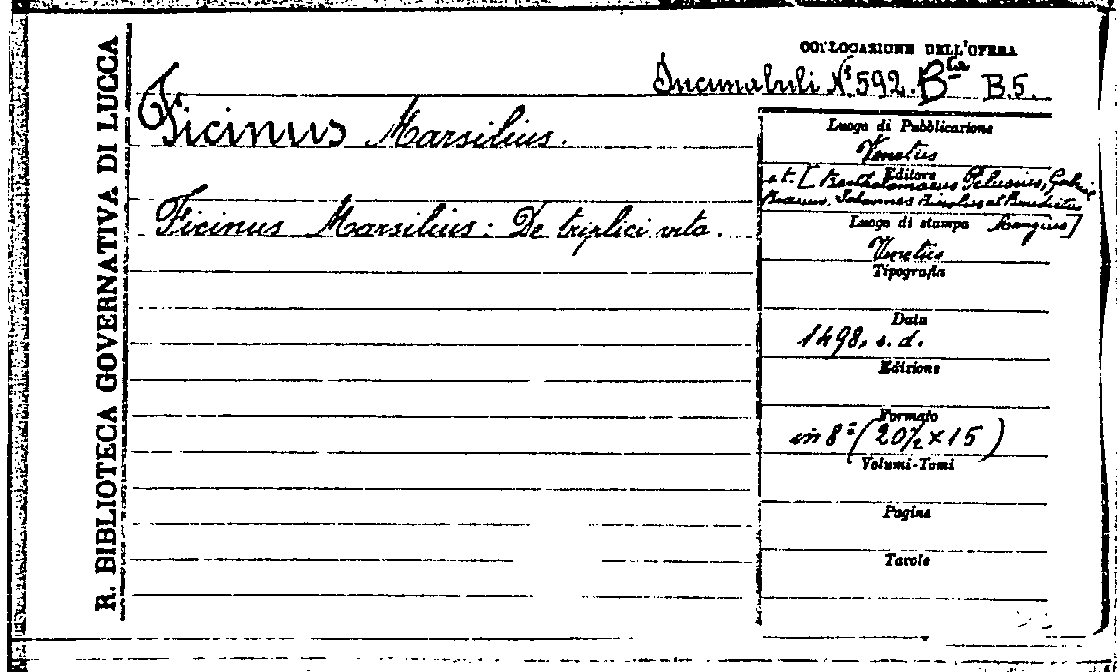 R. BIBLIOTECA GOVERNATIVA DI LUCCA
COLLOCAZIONE DELL'OPERA
Incunabuli N.º 592. Bta B.5.
Ficinus Marsilius.
Ficinus Marsilius: De triplici vita.
Luogo di Pubblicazione
Venetiis
Editore
et. [Bartholomaeus Pelusius, Gabriel
Braccius, Johannes Bissolus et Benedictus
Luogo di stampa Mangius]
Venetiis
Tipografia
Data
1498, s. d.
Edizione
Formato
in 8º (20½ × 15)
Volumi-Tomi
Pagine
Tavole